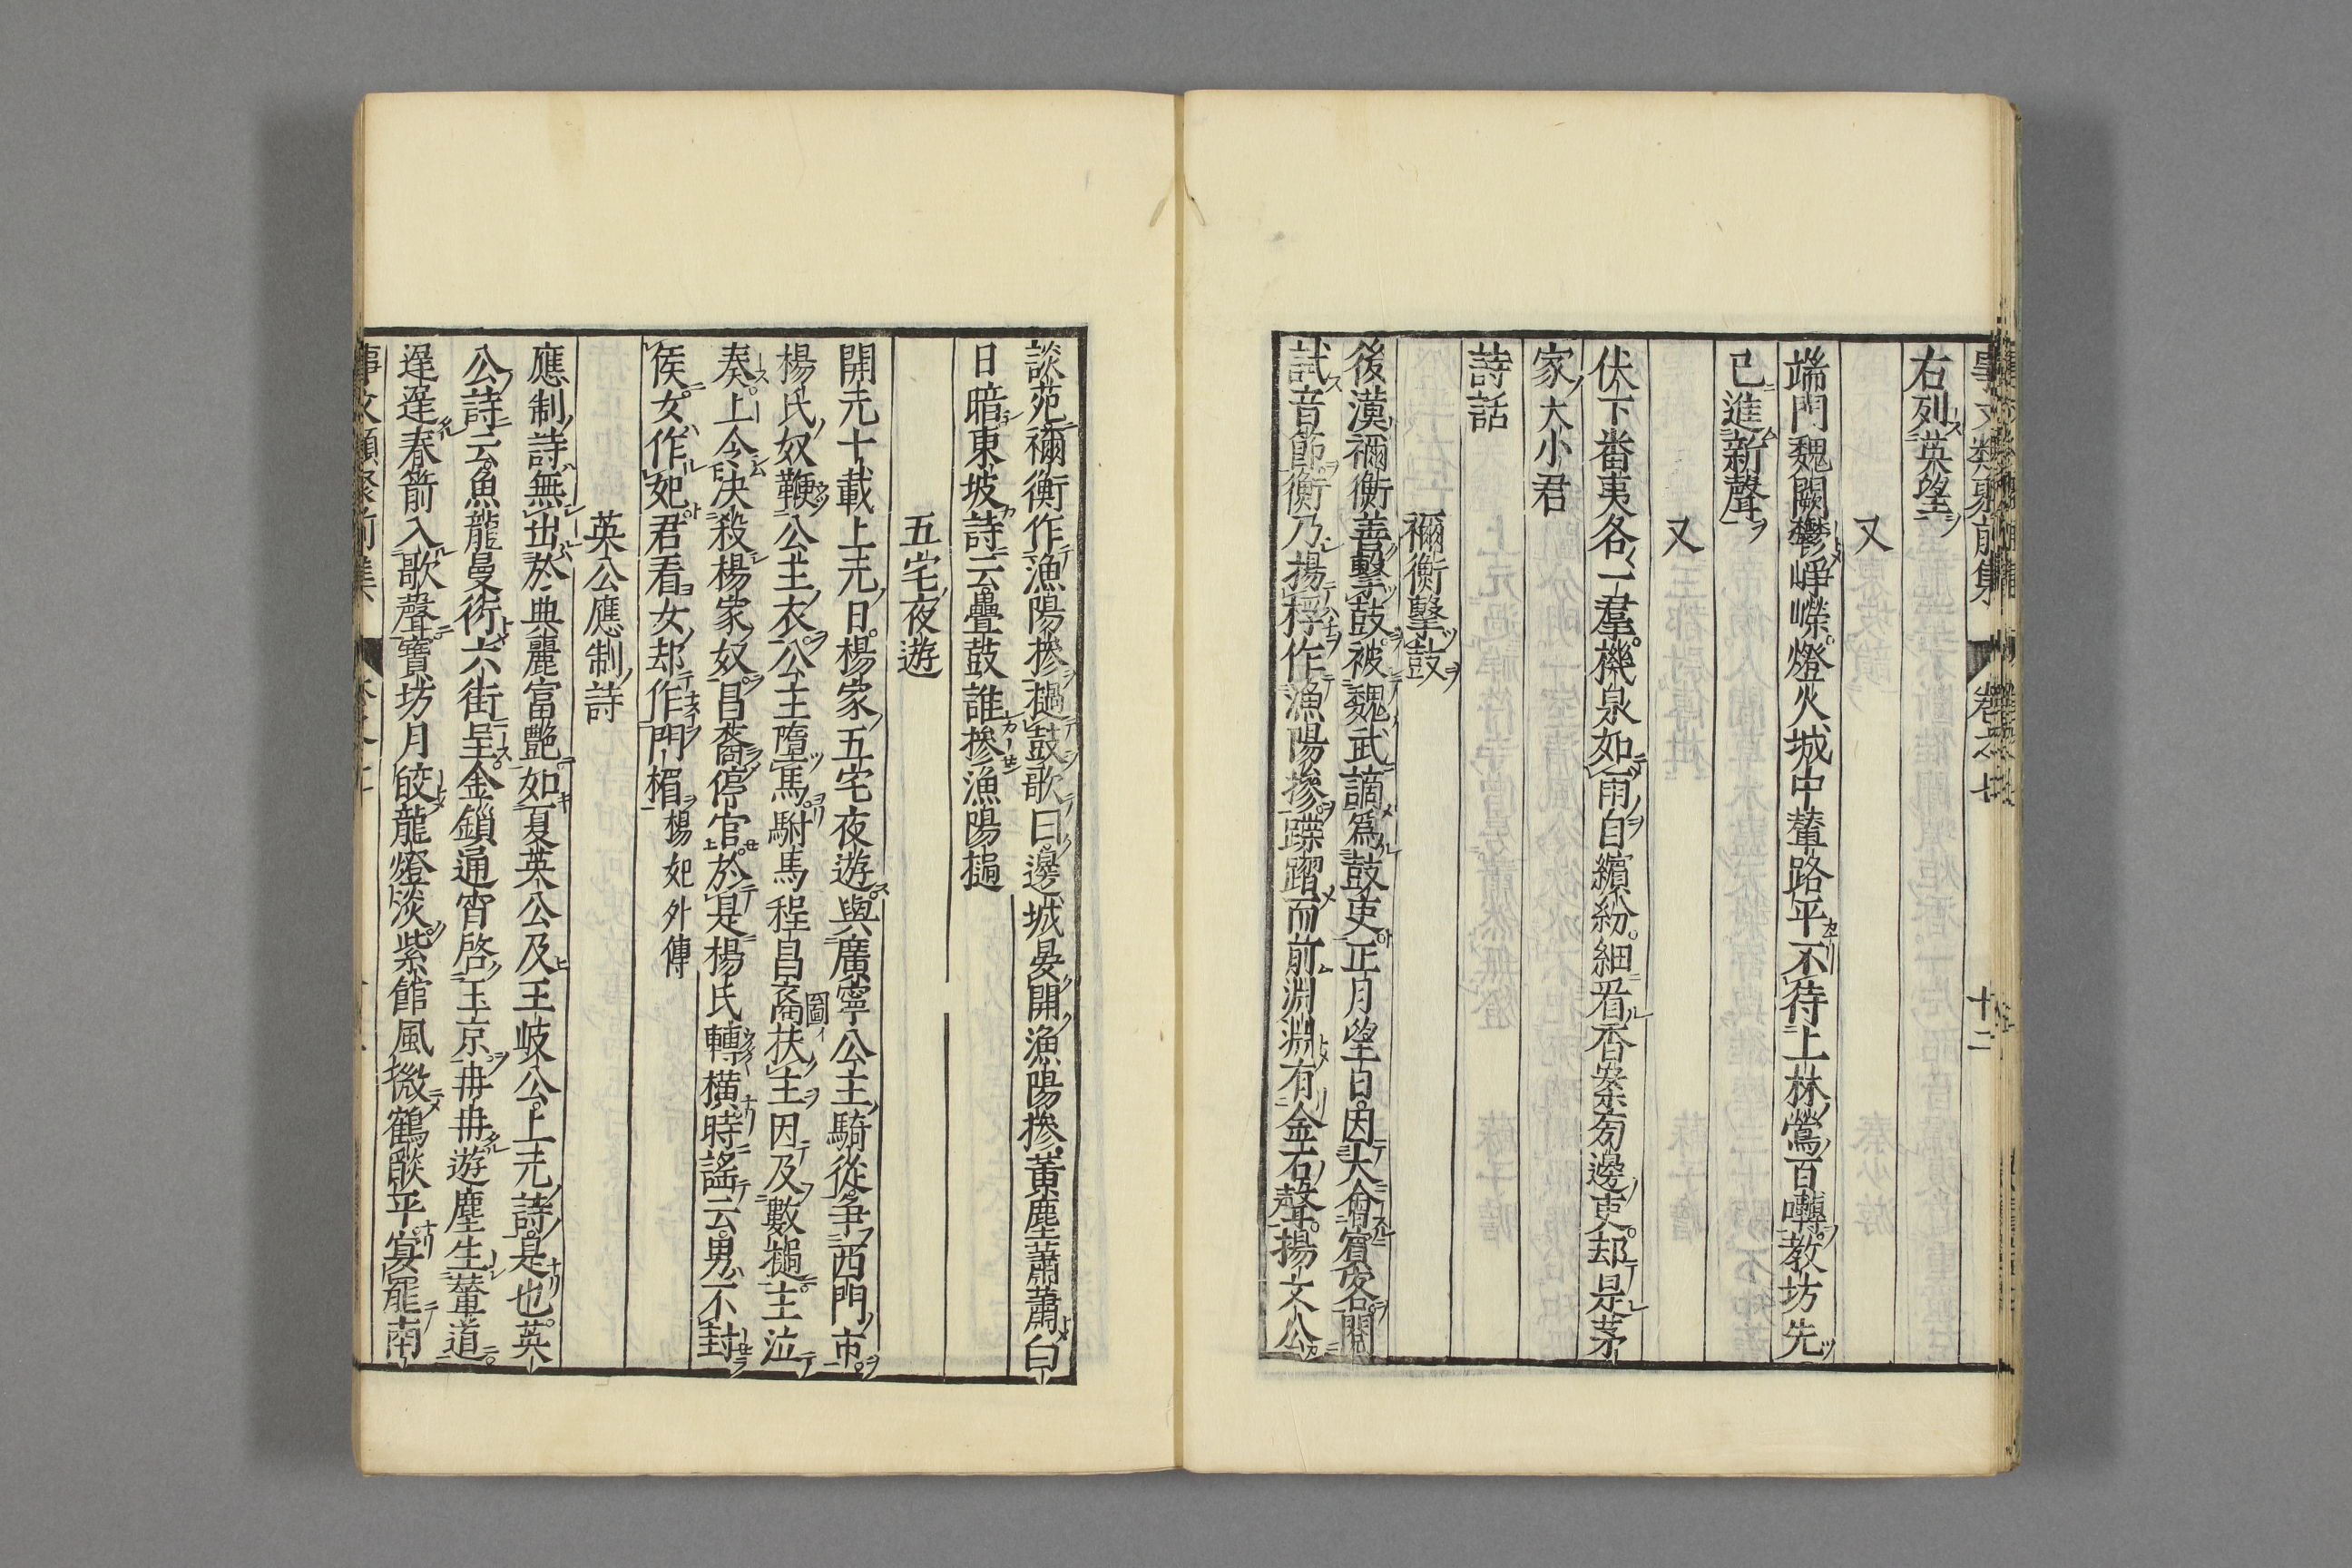 事文類聚前集 卷之七 十二
右列英望
又
端門魏闕鬱崢嶸燈火城中輦路平不待上林鶯百囀教坊先
已進新聲
又
伏下畨夷各一羣機泉如雨自繽紛細看香案旁邊吏却是茅
家大小君
詩話
禰衡擊鼓
後漢禰衡善擊鼓被魏武謫爲鼓吏正月望日因大會賓客閱
試音節衡乃揚桴作漁陽摻蹀躍而前淵淵有金石聲揚文公
談苑禰衡作漁陽摻檛鼓歌曰邊城晏開漁陽摻黃塵蕭蕭白
日暗東坡詩云疊鼓誰摻漁陽撾
五宅夜遊
開元十載上元日楊家五宅夜遊與廣寧公主騎從爭西門市
楊氏奴鞭公主衣公主墮馬駙馬程昌裔圖イ扶主因及數撾主泣
奏上令決殺楊家奴昌裔停官於是楊氏轉橫時謠云男不封
侯女作妃君看女却作門楣楊妃外傳
英公應制詩
應制詩無出於典麗富艷如夏英公及王岐公上元詩是也英
公詩云魚龍曼衍六街呈金鎖通宵啓玉京冉冉遊塵生輦道
遲遲春箭入歌聲寶坊月皎龍燈淡紫館風微鶴燄平宴罷南